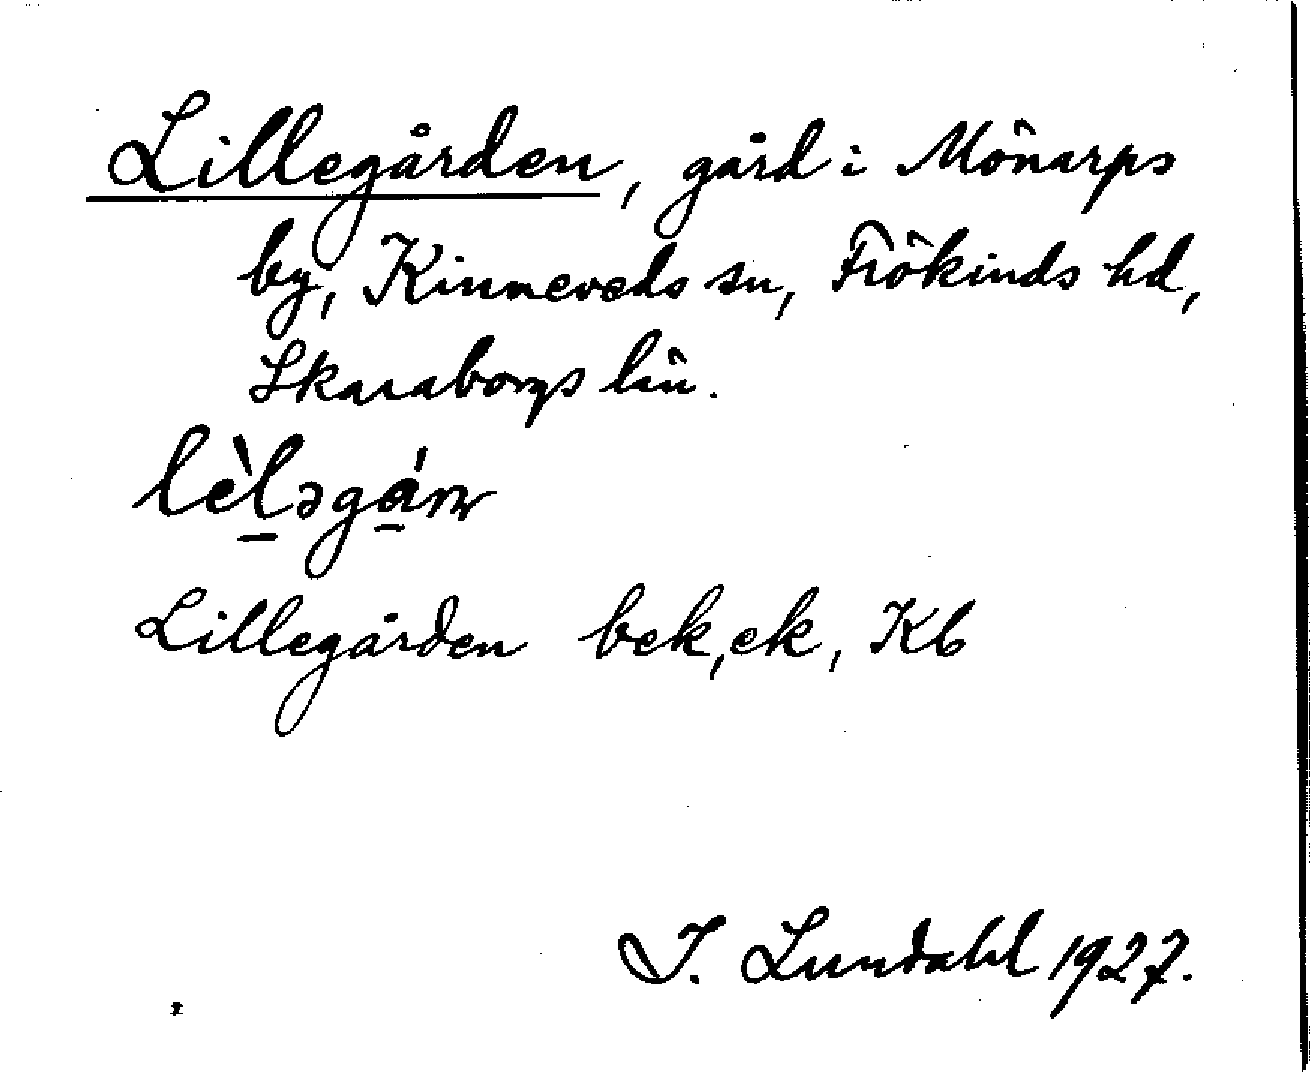 Lillegården, gård i Mönarps
by, Kinneveds sn, Frökinds hd,
Skaraborgs län.
Lillegården bek, ek, Kb
I. Lundahl 1927.